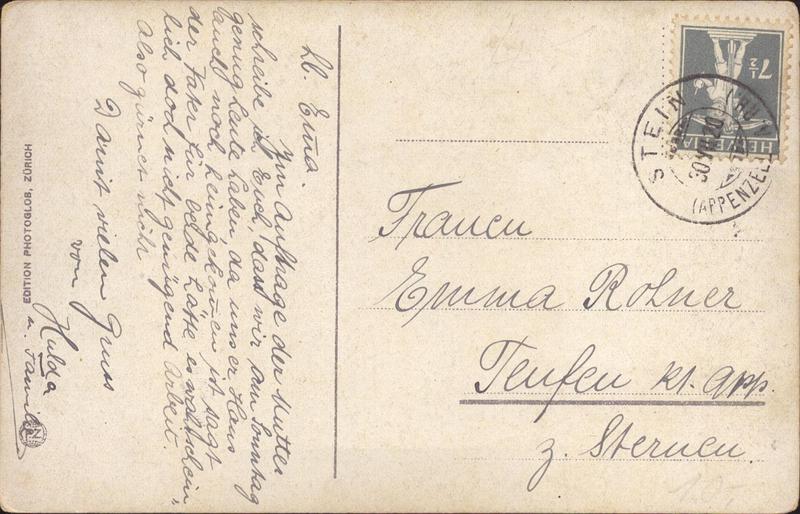 Lb. Emma.
Im Auftrage der Mutter
schreibe ich Euch, dass wir am Sonntag
genug Leute haben, da unser Hans
auch noch heimgekommen ist, sagt
der Vater für beide hätte es wahrschein,
lich doch nicht genügend Arbeit.
Also zürnet nicht
Damit vielen Gruss
von Hulda
u. Familie
EDITION PHOTOGLOB, ZÜRICH
7½
HELVETIA
STEIN
30 VII 20
(APPENZELL
Frauen
Emma Rohner
Teufen Kt. App.
z. Sternen.